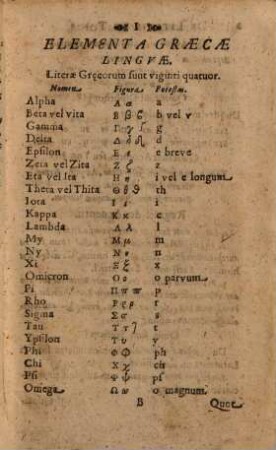 I
ELEMENTA GRÆCÆ
LINGVÆ.
Literæ Gręcorum sunt viginti quatuor.
Nomen. Figura. Potestas.
Alpha Α α a
Beta vel vita Β β ϐ b vel v
Gamma Γ γ g
Delta Δ δ d
Epsilon Ε ε e breve
Zeta vel Zita Ζ ζ z
Eta vel Ita Η η i vel e longum
Theta vel Thita Θ θ ϑ th
Iota Ι ι i
Kappa Κ κ c
Lambda Λ λ l
My Μ μ m
Ny Ν ν n
Xi Ξ ξ x
Omicron Ο ο o parvum
Pi Π π ϖ p
Rho Ρ ρ r
Sigma Σ σ s
Tau Τ τ t
Ypsilon Υ υ y
Phi Φ φ ph
Chi Χ χ ch
Psi Ψ ψ ps
Omega Ω ω o magnum
B Quæ